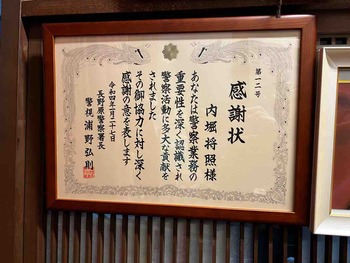 第一二号
感謝状
内堀将照様
あなたは警察業務の
重要性を深く認識され
警察活動に多大な貢献を
されました
その御協力に対し深く
感謝の意を表します
令和四年二月二十七日
長野原警察署長
警視 浦野弘則